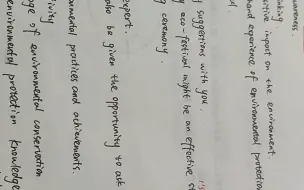 awareness.
nking
sitive impact on the environment.
hand experience of environmental protection
ul
y suggestions with you.
y eco-festival might be an effective s
g ceremony
expert.
also be given the opportunity to ask
tivity
nmental practices and achievements.
ge of environmental conservation
environmental protection knowledge